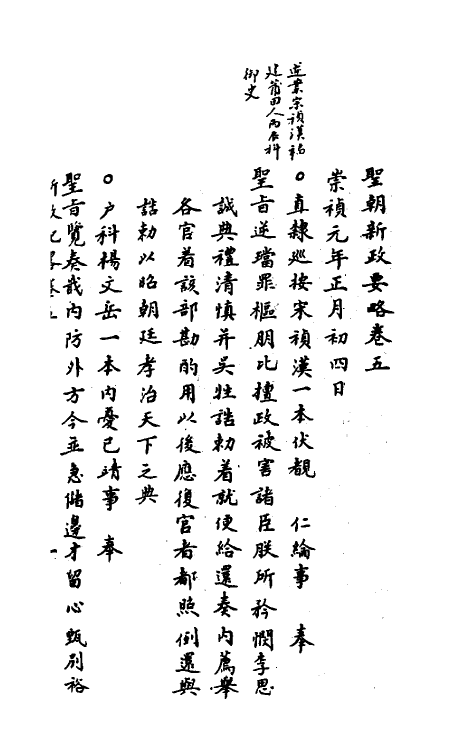 聖朝新政要略卷五
崇禎元年正月初四日
○直隸巡按宋禎漢一本伏覩 仁綸事 奉
聖旨逆璫罪樞朋比擅政被害諸臣朕所矜憫李思
誠典禮清慎并吳甡誥勅着就便給還奏內薦舉
各官着該部勘酌用以後應復官者都照例還與
誥勅以昭朝廷孝治天下之典
○户科楊文岳一本內憂已靖事 奉
聖旨覽奏我內防外方今並急儲邊才留心甄别裕
宗禎漢
建莆田人丙辰科
御史
一